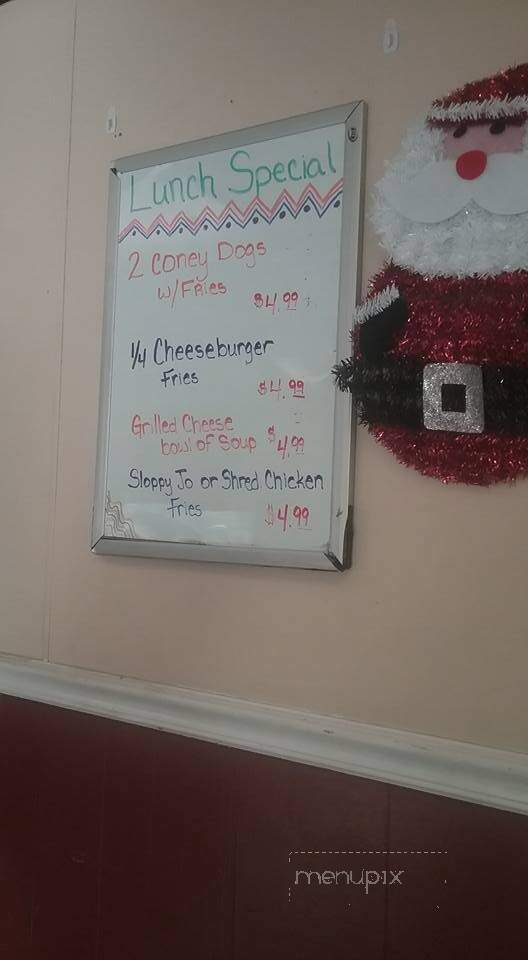 Lunch Special
2 Coney Dogs
w/Fries
$4.99
1/4 Cheeseburger
Fries
$4.99
Grilled Cheese
bowl of Soup $4.99
Sloppy Jo or Shred Chicken
Fries
$4.99
menupix